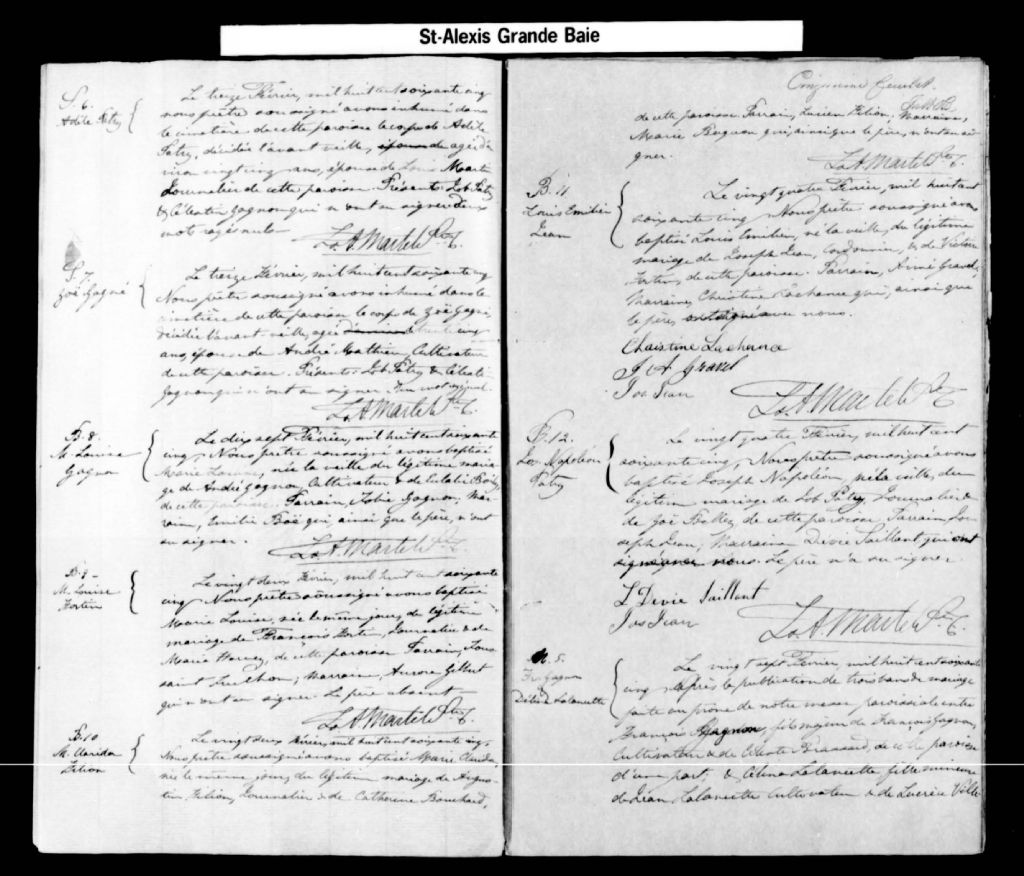 St-Alexis Grande Baie
S. 6.
Adèle Patry
Le treize Février, mil huit cent soixante cinq
nous prêtre soussigné avons inhumé dans
le cimetière de cette paroisse le corps de Adèle
Patry, décédée l'avant veille, épouse de agée d'en-
viron vingt cinq ans, épouse de Louis Martin
Journalier de cette paroisse. Présents Job Patry
& Célestin Gagnon qui n'ont su signer. Deux
mots rayés nuls.
Ls A. Martel Ptre
S. 7.
Zoé Gagné
Le treize Février, mil huit cent soixante cinq
Nous prêtre soussigné avons inhumé dans le
cimetière de cette paroisse le corps de Zoé Gagné
décédée l'avant veille, agée cinq
ans, épouse de André Mathieu, Cultivateur
de cette paroisse. Présents Job Patry & Célestin
Gagnon qui n'ont su signer. Un mot
Ls A. Martel Ptre
B. 8.
M. Louise
Gagnon
Le dix sept Février, mil huit cent soixante
cinq, Nous prêtre soussigné avons baptisé
Marie Louise, née la veille du légitime maria-
ge de André Gagnon, Cultivateur & de Eulalie
de cette paroisse. Parrain, Gagnon, Mar-
raine, Emélie qui, ainsi que le père, n'ont
su signer.
Ls A. Martel Ptre
B. 9
M. Louise
Fortin
Le vingt deux Février, mil huit cent soixante
cinq Nous prêtre soussigné avons baptisé
Marie Louise, née le même jour, du légitime
mariage de François Fortin, Journalier & de
Marie Harvey, de cette paroisse. Parrain, Tous-
saint, Marraine, Aurore Gilbert
qui n'ont su signer. Le père absent.
Ls A. Martel Ptre
B. 10
M. Clarida
Filion
Le vingt deux Février, mil huit cent soixante cinq,
Nous prêtre soussigné avons baptisé Marie Clarida,
née le même jour, du légitime mariage de Augus-
tin Filion, Journalier & de Catherine Bouchard,
de cette paroisse. Parrain, Lucien Filion, Marraine,
Marie qui, ainsi que le père, n'ont su si-
gner.
Ls A. Martel Ptre
B. 11
Louis Emilien
Jean
Le vingt quatre Février, mil huit cent
soixante cinq Nous prêtre soussigné avons
baptisé Louis Emilien, né la veille, du légitime
mariage de Joseph Jean, Cordonnier, & de Victoire
Fortin, de cette paroisse. Parrain, Aimé Gravel,
Marraine, Christine Lachance qui, ainsi que
le père, ont signé avec nous.
Christine Lachance
J A Gravel
Jos Jean
Ls A. Martel Ptre
B. 12.
Jos. Napoléon
Patry
Le vingt quatre Février, mil huit cent
soixante cinq, Nous prêtre soussigné avons
baptisé Joseph Napoléon, né la veille, du
légitime mariage de Job Patry, Journalier &
de Zoé de cette paroisse. Parrain Jo-
seph Jean, Marraine Devie Saillant qui ont
signé avec nous. Le père n'a su signer.
L Devie Saillant
Jos Jean
Ls A. Martel Ptre
M. 5.
Fr. Gagnon
Délina Lalancette
Le vingt sept Février, mil huit cent soixante
cinq après la publication de trois bans de mariage
faite au prône de notre messe paroissiale entre
François Gagnon, fils majeur de François Gagnon,
Cultivateur & de Brassard, de cette paroisse
d'une part; & Célina Lalancette fille mineure
de Jean Lalancette Cultivateur & de Lucrèce